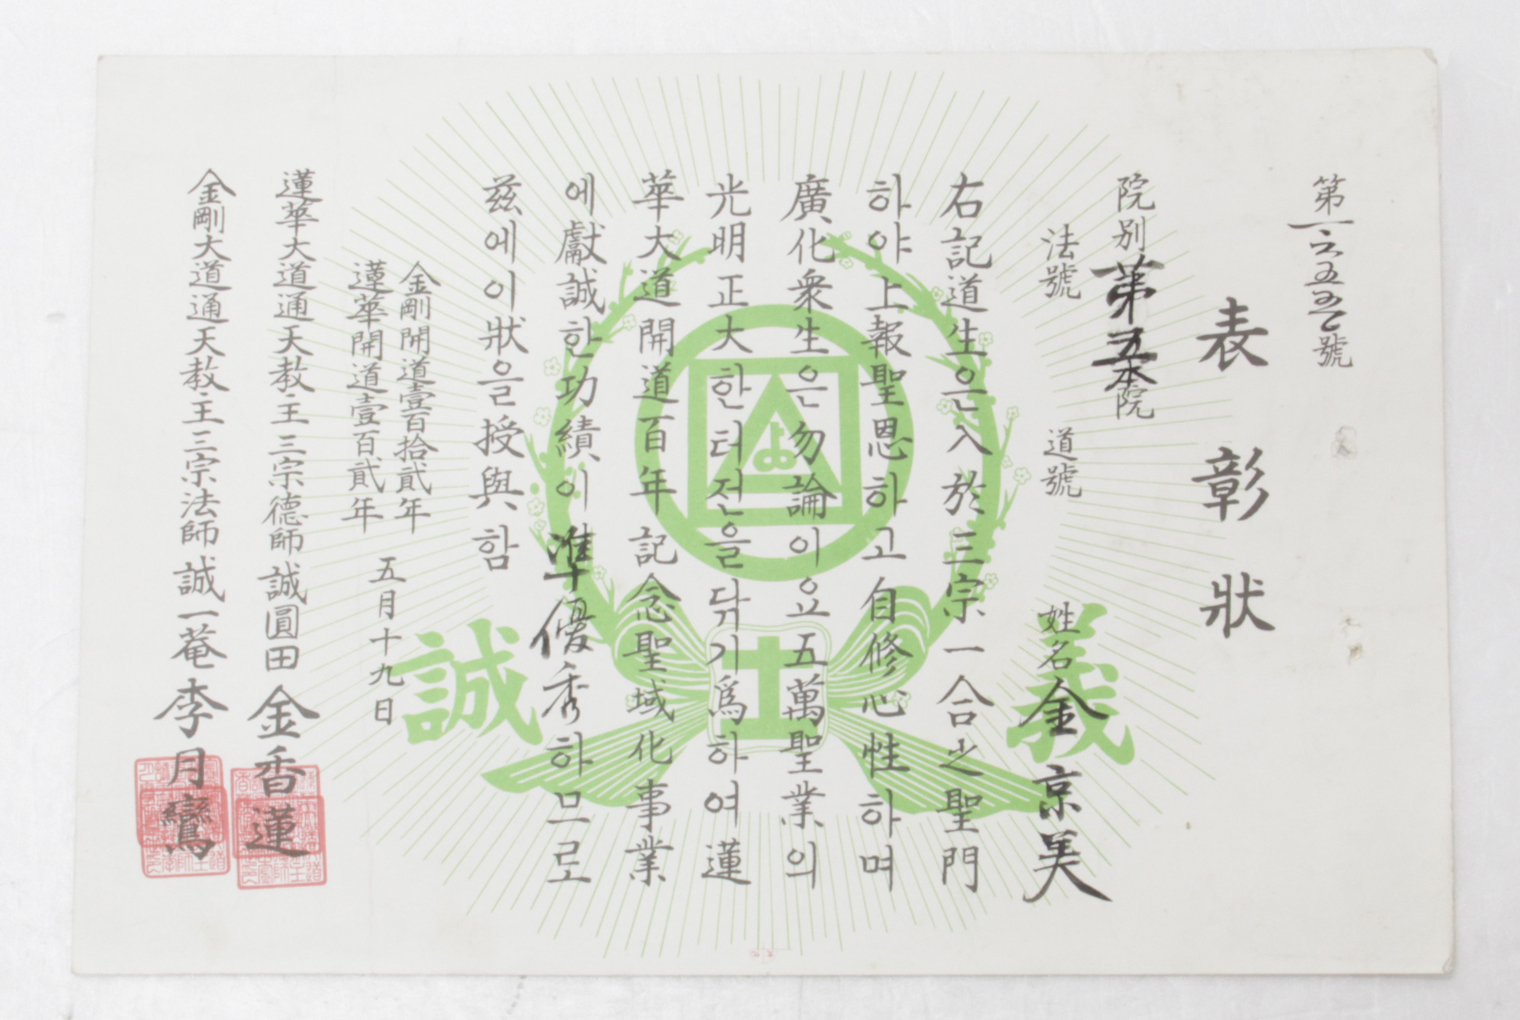 第一六五五號
表彰狀
院別 第五本院
法號 道號 姓名 金京美
右記道生은入於三宗一合之聖門
하야上報聖恩하고自修心性하며
廣化衆生은勿論이요五萬聖業의
光明正大한터전을닦기爲하여蓮
華大道開道百年記念聖域化事業
에獻誠한功績이準優秀하므로
玆에이狀을授與함
金剛開道壹百拾貳年
蓮華開道壹百貳年
五月十九日
蓮華大道通天教主三宗德師誠圓田金香蓮
金剛大道通天教主三宗法師誠一菴李月鸞
義
誠
土